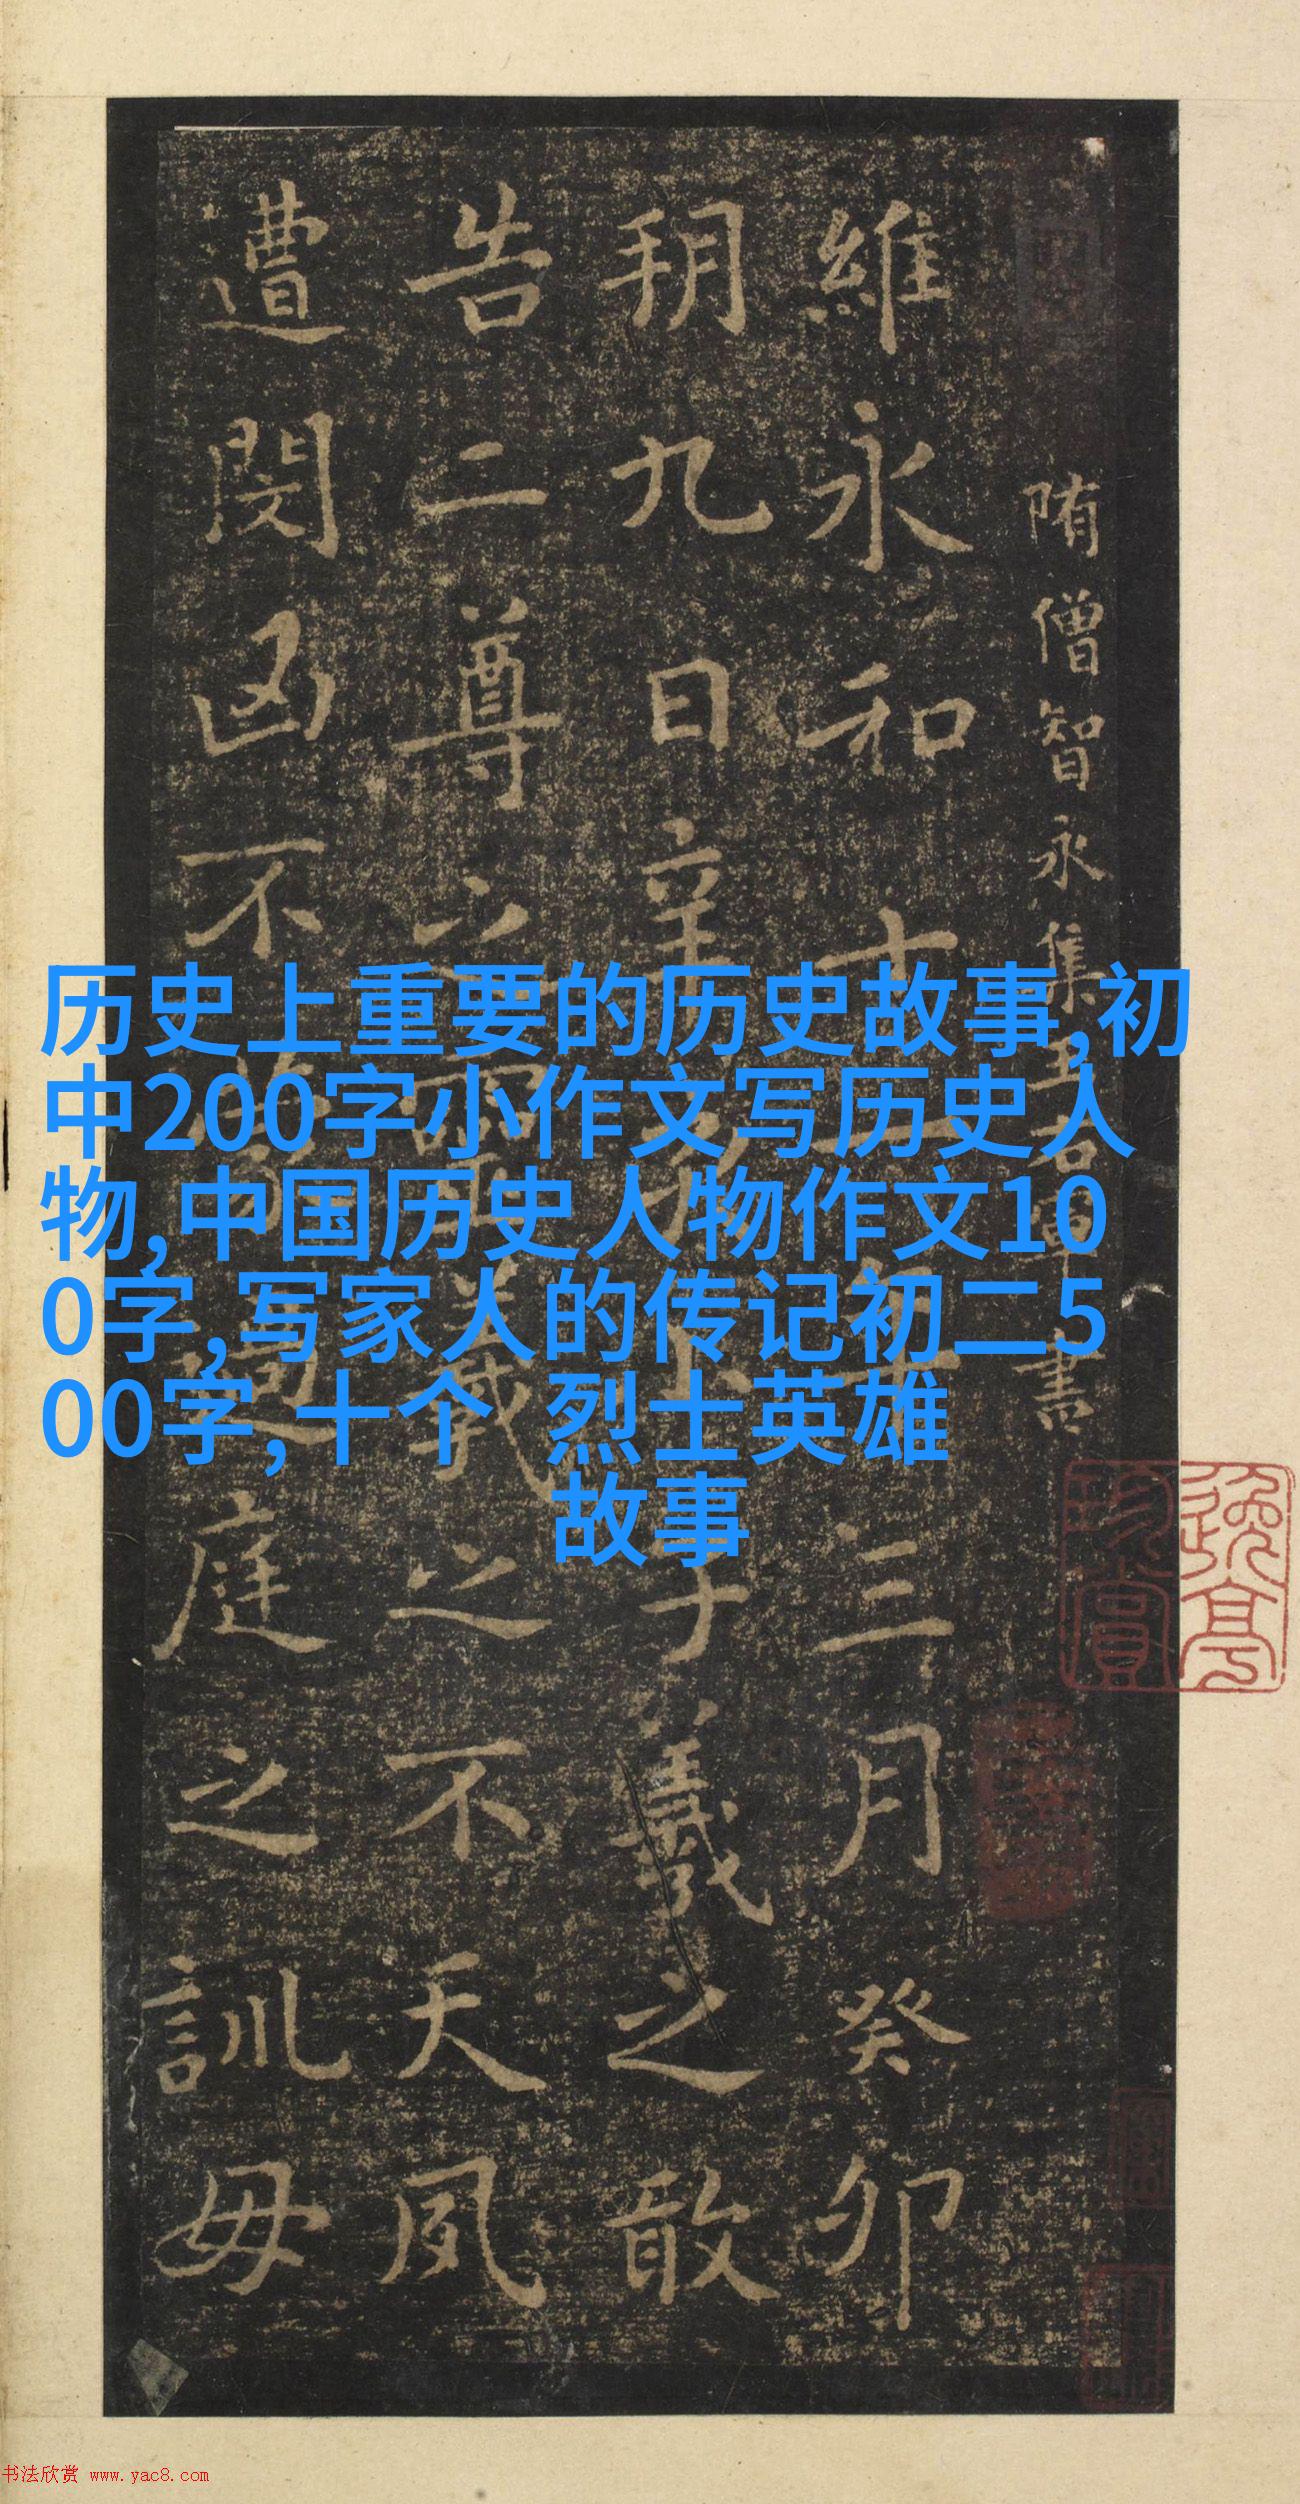 隋僧智永集王右軍書
維永和十一年三月癸卯
朔九日辛
子羲之敢
告二尊之靈羲之不天夙
遭閔凶不蒙過庭之訓毋
历史上重要的历史故事,初
中200字小作文写历史人
物,中国历史人物作文10
0字,写家人的传记初二5
00字,十个 烈士英雄
故事
书法欣赏 www.yac8.com